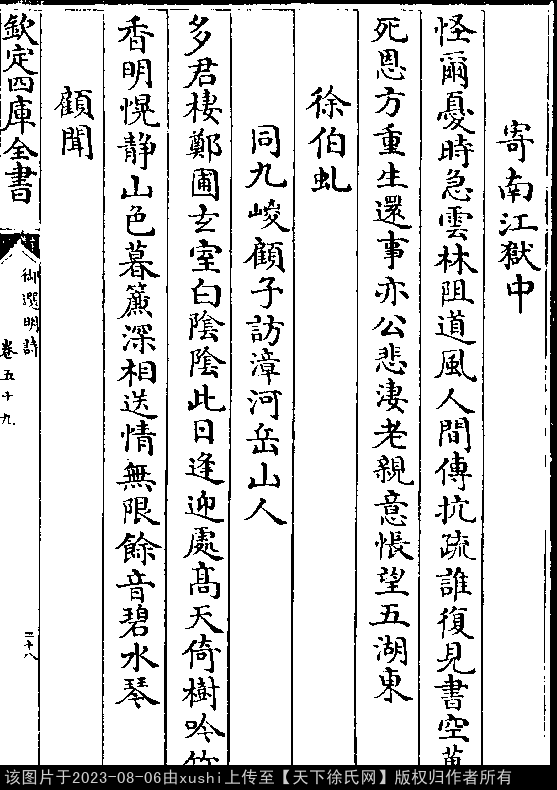 寄南江獄中
怪爾憂時急雲林阻道風人間傳抗疏誰復見書空萬
死恩方重生還事亦公悲淒老親意悵望五湖東
徐伯虬
同九峻顧子訪漳河岳山人
多君棲鄭圃玄室白陰陰此日逢迎處高天倚樹吟竹
香明幌静山色暮簾深相送情無限餘音碧水琴
顧聞
欽定四庫全書
御選明詩
卷五十九
三十八
该图片于2023-08-06由xushi上传至【天下徐氏网】版权归作者所有